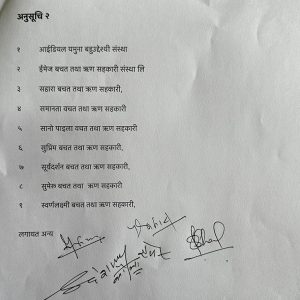 अनुसूचि २
१ आईडियल यमुना बहुउद्देश्यी संस्था
२ ईमेज बचत तथा ऋण सहकारी संस्था लि
३ सहारा बचत तथा ऋण सहकारी,
४ समानता वचत तथा ऋण सहकारी
५ सानो पाइला वचत तथा ऋण सहकारी
६ सुप्रिम बचत तथा ऋण सहकारी,
७ सूर्यदर्शन बचत तथा ऋण सहकारी,
८ सुमेरु बचत तथा ऋण सहकारी
९ स्वर्णलक्ष्मी बचत तथा ऋण सहकारी,
लगायत अन्य